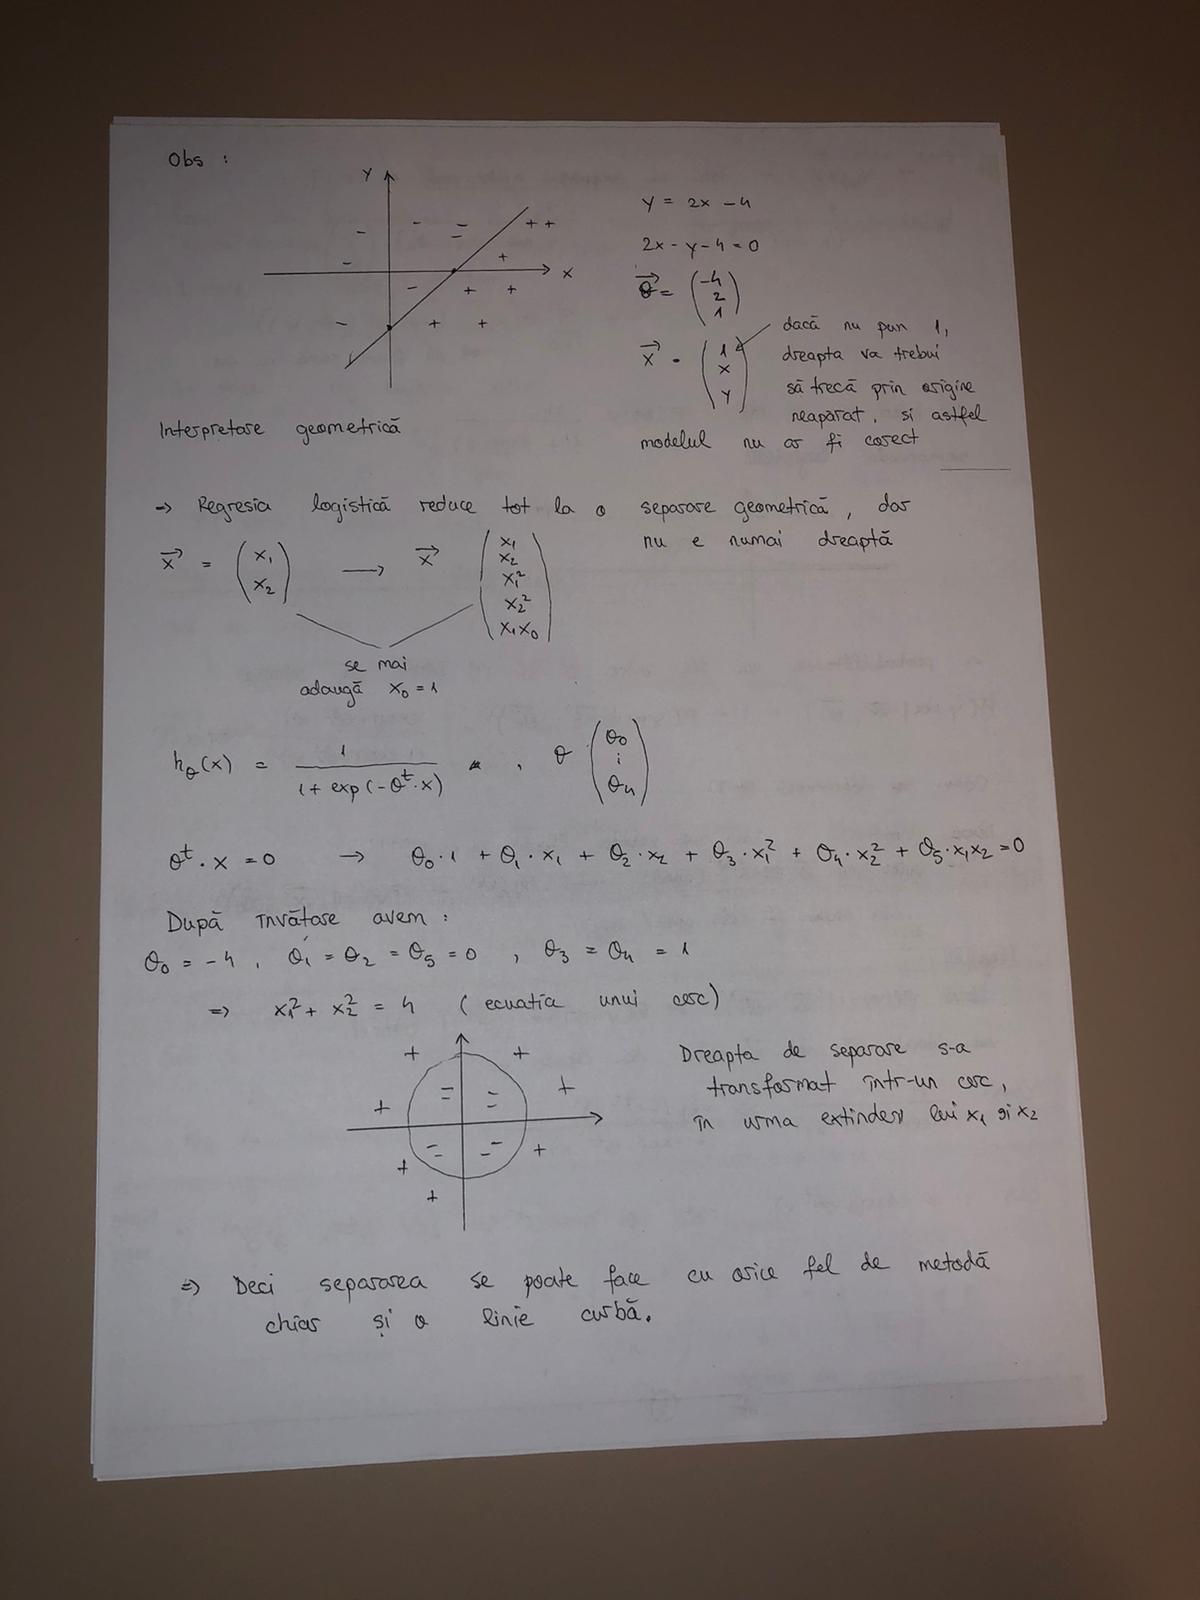 Obs :
Y
X
y = 2x - 4
2x - y - 4 = 0
θ⃗ = (-4
2
1)
x⃗ = (1
x
y)
dacă nu pun 1,
dreapta va trebui
să treacă prin origine
neapărat, si astfel
modelul nu ar fi corect
Interpretare geometrică
→ Regresia logistică reduce tot la o separare geometrică, dar
nu e numai dreaptă
x⃗ = (x₁
x₂) → x⃗ (x₁
x₂
x₁²
x₂²
x₁x₀)
se mai
adaugă x₀ = 1
h_θ(x) = 1 / (1 + exp(-θᵗ·x)) , θ (θ₀
⋮
θ₄)
θᵗ · x = 0 → θ₀·1 + θ₁·x₁ + θ₂·x₂ + θ₃·x₁² + θ₄·x₂² + θ₅·x₁x₂ = 0
După învățare avem :
θ₀ = -4, θ₁ = θ₂ = θ₅ = 0 , θ₃ = θ₄ = 1
⇒ x₁² + x₂² = 4 (ecuatia unui cerc)
Dreapta de separare s-a
transformat într-un cerc,
în urma extinderii lui x₁ și x₂
⇒ Deci separarea se poate face cu orice fel de metodă
chiar și o linie curbă.